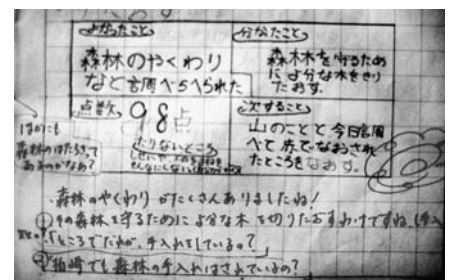 よかったこと
森林のやくわり
など調べらへられた
分かったこと
森林を守るため
によ分な木をきり
たおす。
点数 98点
たりないところ
次すること
山のことと今日調
べて赤でなおされ
たところをなおす。
ほかにも
森林のはたらきって
あるのかなあ?
・森林のやくわりがたくさんありましたね!
①その森林を守るためによ分な木を切りたおすわけですね。(手入
「ところで」だれが、手入れをしているの?
②柏崎でも森林の手入れはされているの?